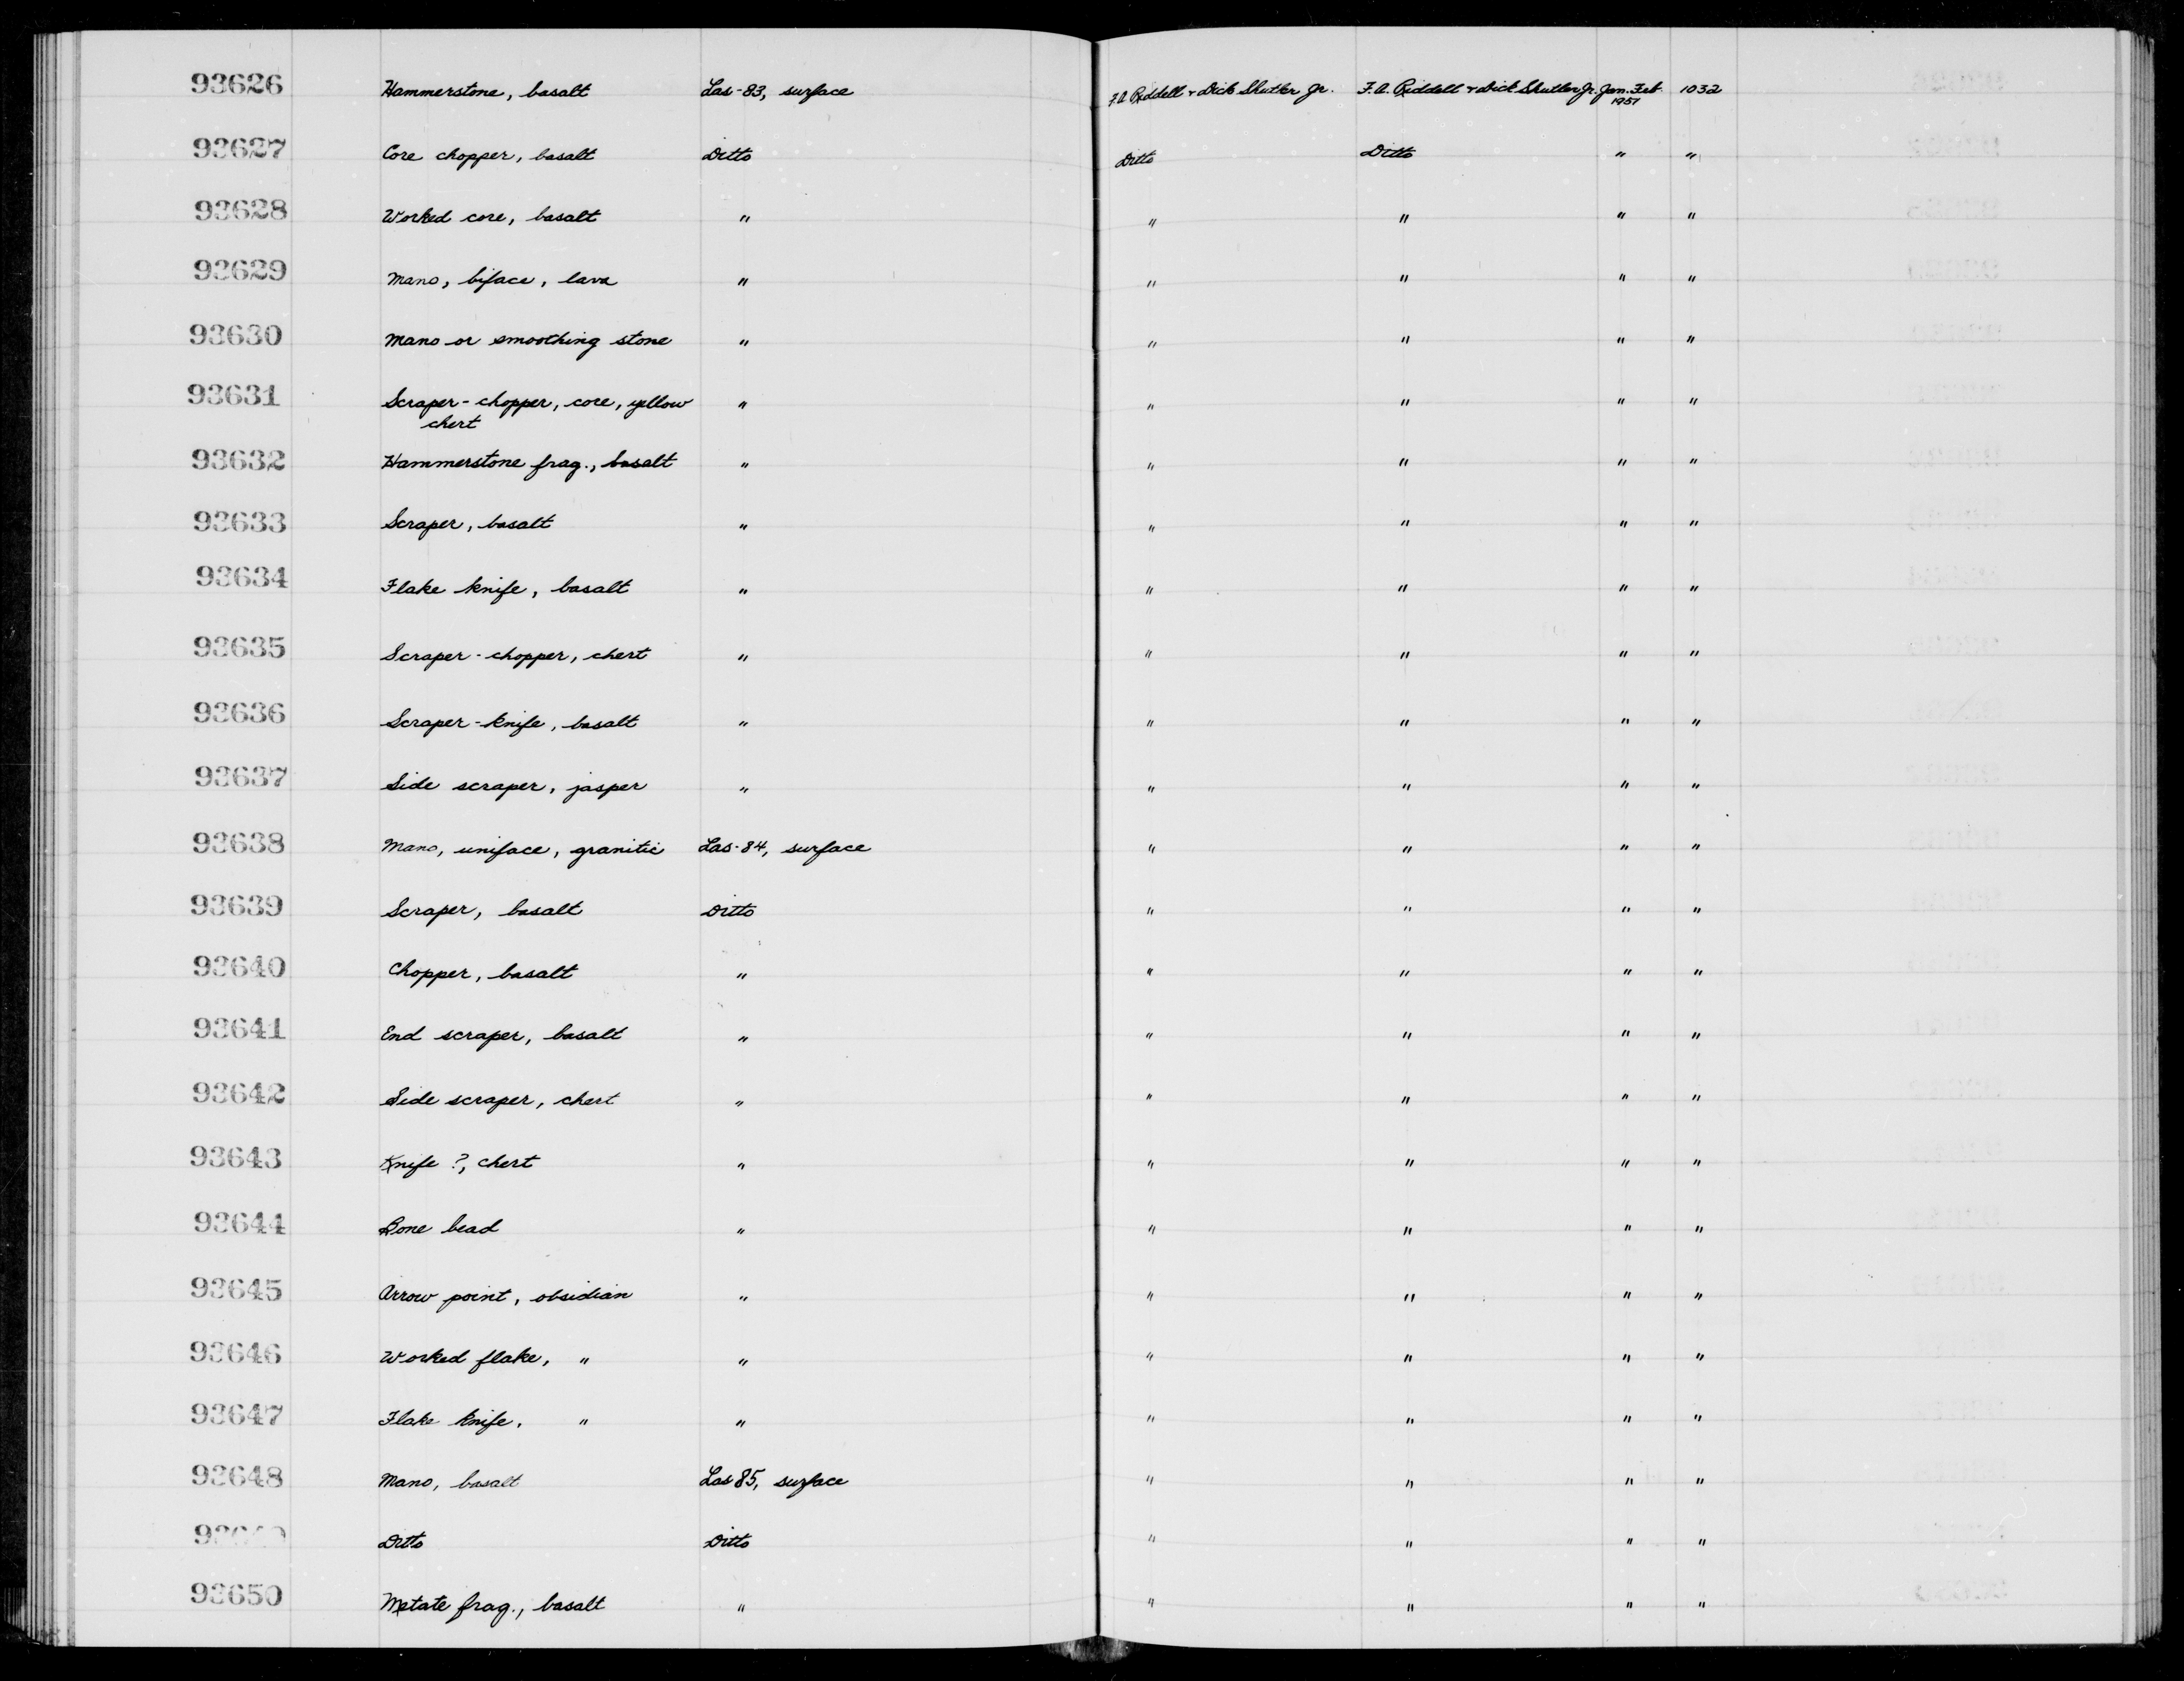 93626 Hammerstone, basalt Las-83, surface F.A. Riddell + Dick Shutler Jr. F.A. Riddell + Dick Shutler Jr. Jan. Feb. 1032
1951
93627 Core chopper, basalt Ditto Ditto Ditto " "
93628 Worked core, basalt " " " " "
93629 Mano, biface, lava " " " " "
93630 Mano or smoothing stone " " " " "
93631 Scraper-chopper, core, yellow " " " " "
chert
93632 Hammerstone frag., basalt " " " " "
93633 Scraper, basalt " " " " "
93634 Flake knife, basalt " " " " "
93635 Scraper-chopper, chert " " " " "
93636 Scraper-knife, basalt " " " " "
93637 Side scraper, jasper " " " " "
93638 Mano, uniface, granitic Las-84, surface " " " "
93639 Scraper, basalt Ditto " " " "
93640 Chopper, basalt " " " " "
93641 End scraper, basalt " " " " "
93642 Side scraper, chert " " " " "
93643 Knife ?, chert " " " " "
93644 Bone bead " " " " "
93645 Arrow point, obsidian " " " " "
93646 Worked flake, " " " " " "
93647 Flake knife, " " " " " "
93648 Mano, basalt Las 85, surface " " " "
93649 Ditto Ditto " " " "
93650 Metate frag., basalt " " " " "